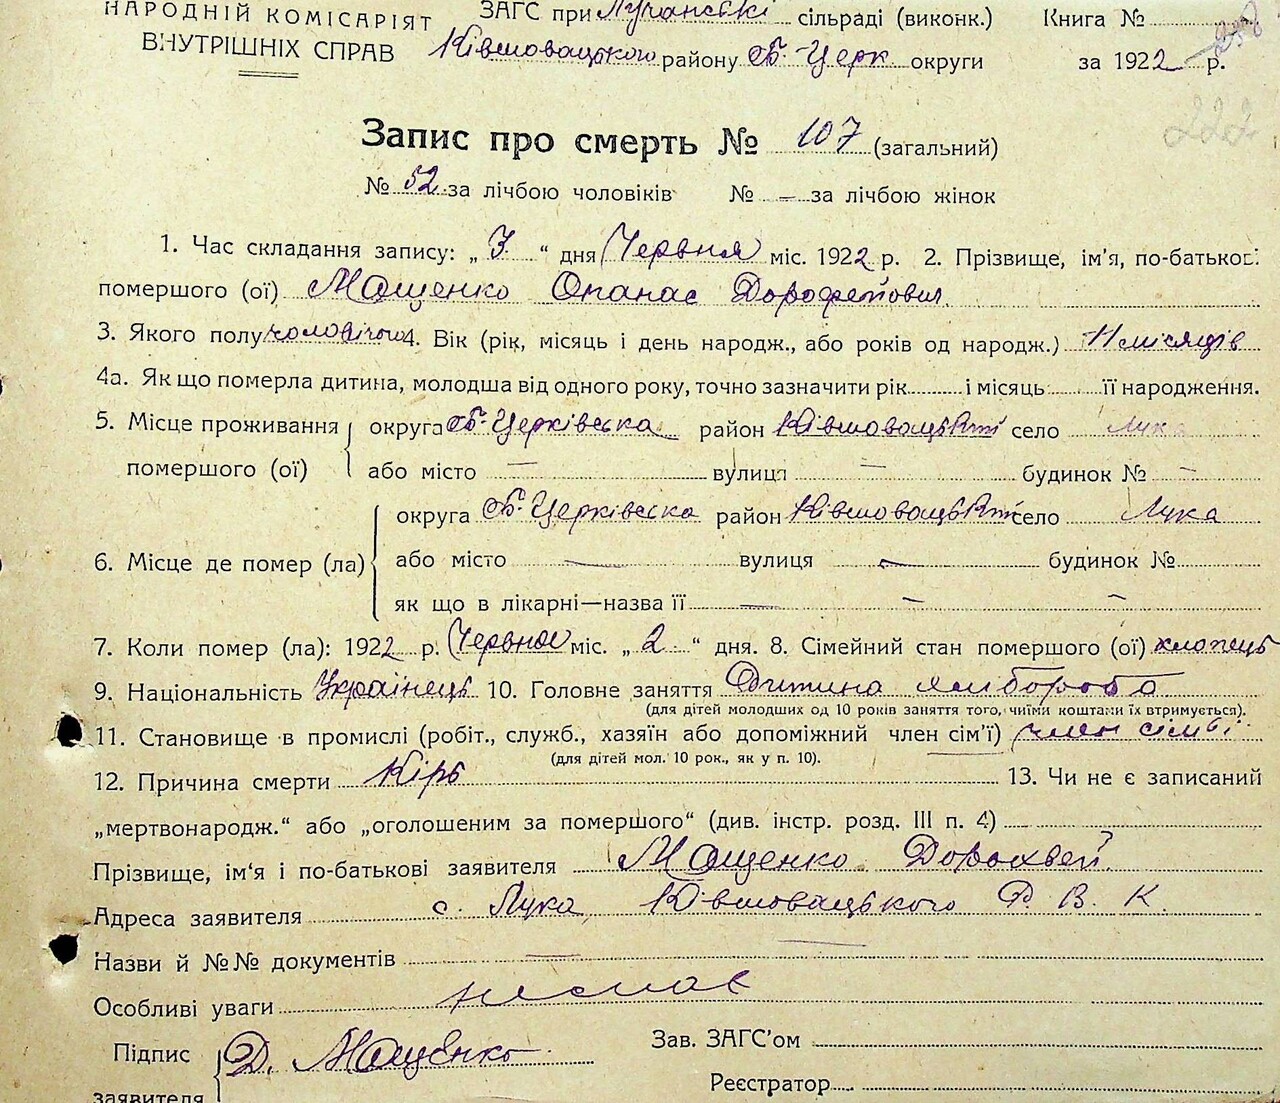 НАРОДНІЙ КОМІСАРІЯТ
ВНУТРІШНІХ СПРАВ
ЗАГС при Лучанські сільраді (виконк.)
Ківшовацького району Б-Церк округи
Книга №
за 1922 р.
Запис про смерть № 107 (загальний)
№ 52 за лічбою чоловіків № — за лічбою жінок
1. Час складання запису: „ 3 “ дня Червня міс. 1922 р. 2. Прізвище, ім’я, по-батькові
помершого (ої) Мащенко Опанас Дорофейович
3. Якого полу чоловічого 4. Вік (рік, місяць і день народж., або років од народж.) 11 місяців
4а. Як що померла дитина, молодша від одного року, точно зазначити рік і місяць її народження.
5. Місце проживання помершого (ої) округа Б-Церківська район Ківшовацький село Лука
або місто — вулиця — будинок № —
6. Місце де помер (ла) округа Б-Церківська район Ківшовацький село Лука
або місто — вулиця — будинок №
як що в лікарні—назва її — — —
7. Коли помер (ла): 1922 р. Червня міс. „ 2 “ дня. 8. Сімейний стан помершого (ої) хлопець
9. Національність Українець 10. Головне заняття Дитина хлібороба
(для дітей молодших од 10 років заняття того, чиїми коштами їх втримується).
11. Становище в промислі (робіт., служб., хазяїн або допоміжний член сім’ї) член сімьї
(для дітей мол. 10 рок., як у п. 10).
12. Причина смерти Кірь 13. Чи не є записаний
„мертвонародж.“ або „оголошеним за помершого“ (див. інстр. розд. III п. 4)
Прізвище, ім’я і по-батькові заявителя Мащенко Дорохвей
Адреса заявителя с. Лука Ківшовацького Р. В. К.
Назви й №№ документів —
Особливі уваги немає
Підпис заявителя Д. Мащенко
Зав. ЗАГС’ом
Реєстратор